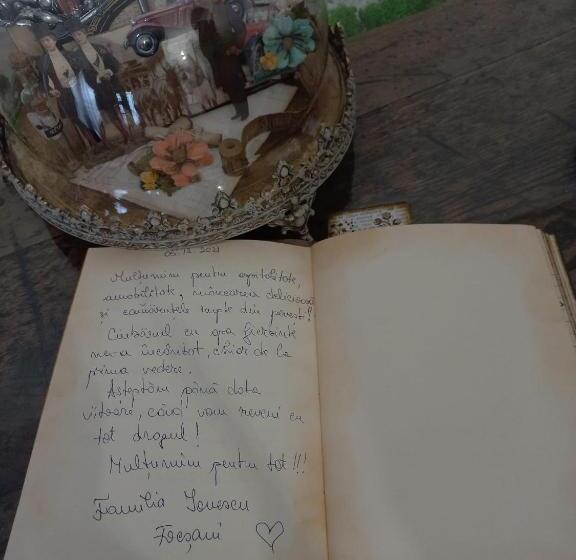 05.12.2021
Mulțumim pentru ospitalitate,
amabilitate, mâncarea delicioasă
și camerele rupte din povești!
cu
ne-a încântat, chiar de la
prima vedere.
Așteptăm până data
viitoare, când vom reveni cu
tot dragul!
Mulțumim pentru tot!!!
Familia Ionescu
Focșani